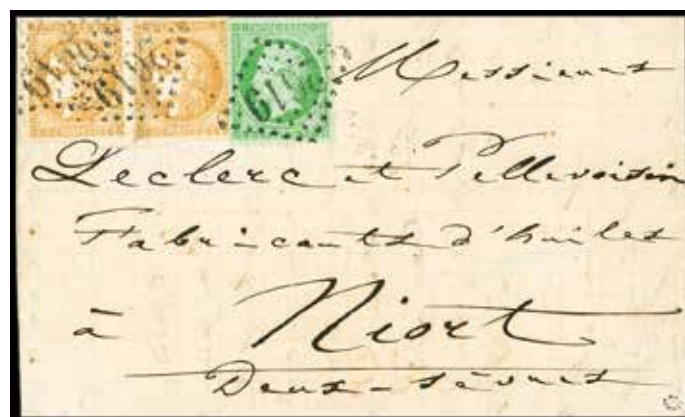 Messieurs
Leclerc et Pellevoisin
Fabricants d'huiles
à Niort
Deux-Sèvres